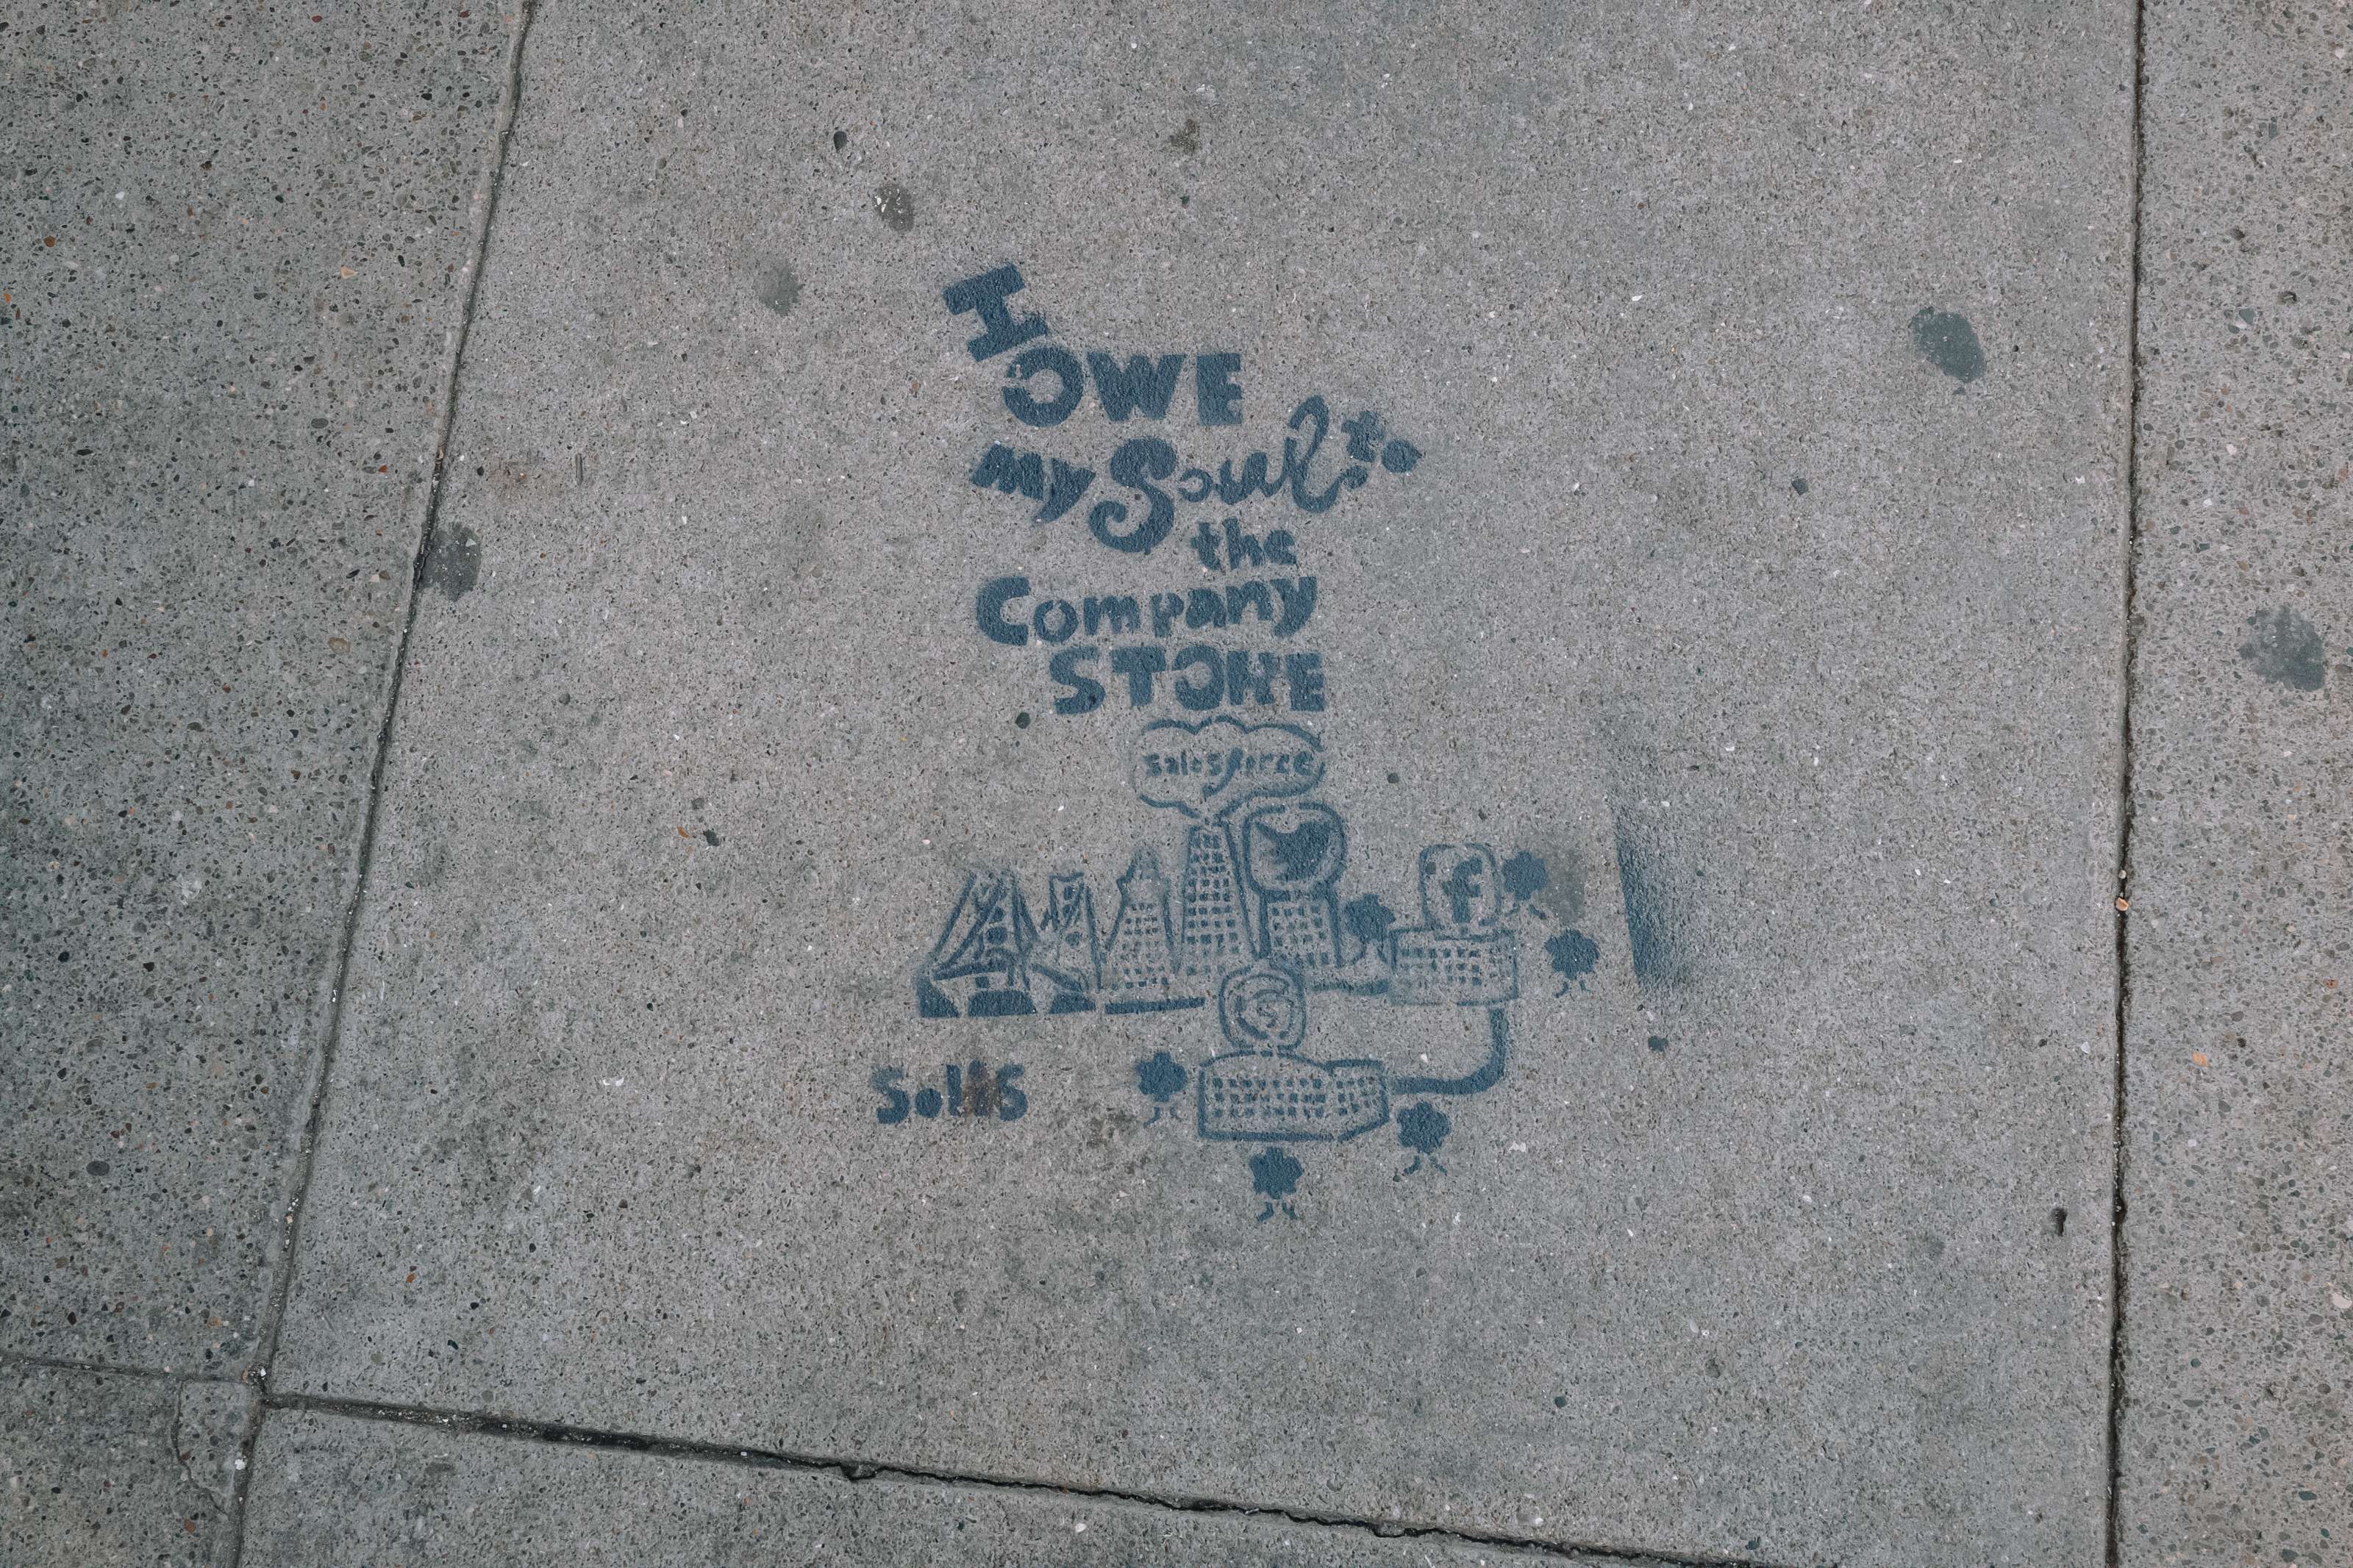 I
OWE
my Soul to
the
Company
STORE
salesforce
f
G
Solis